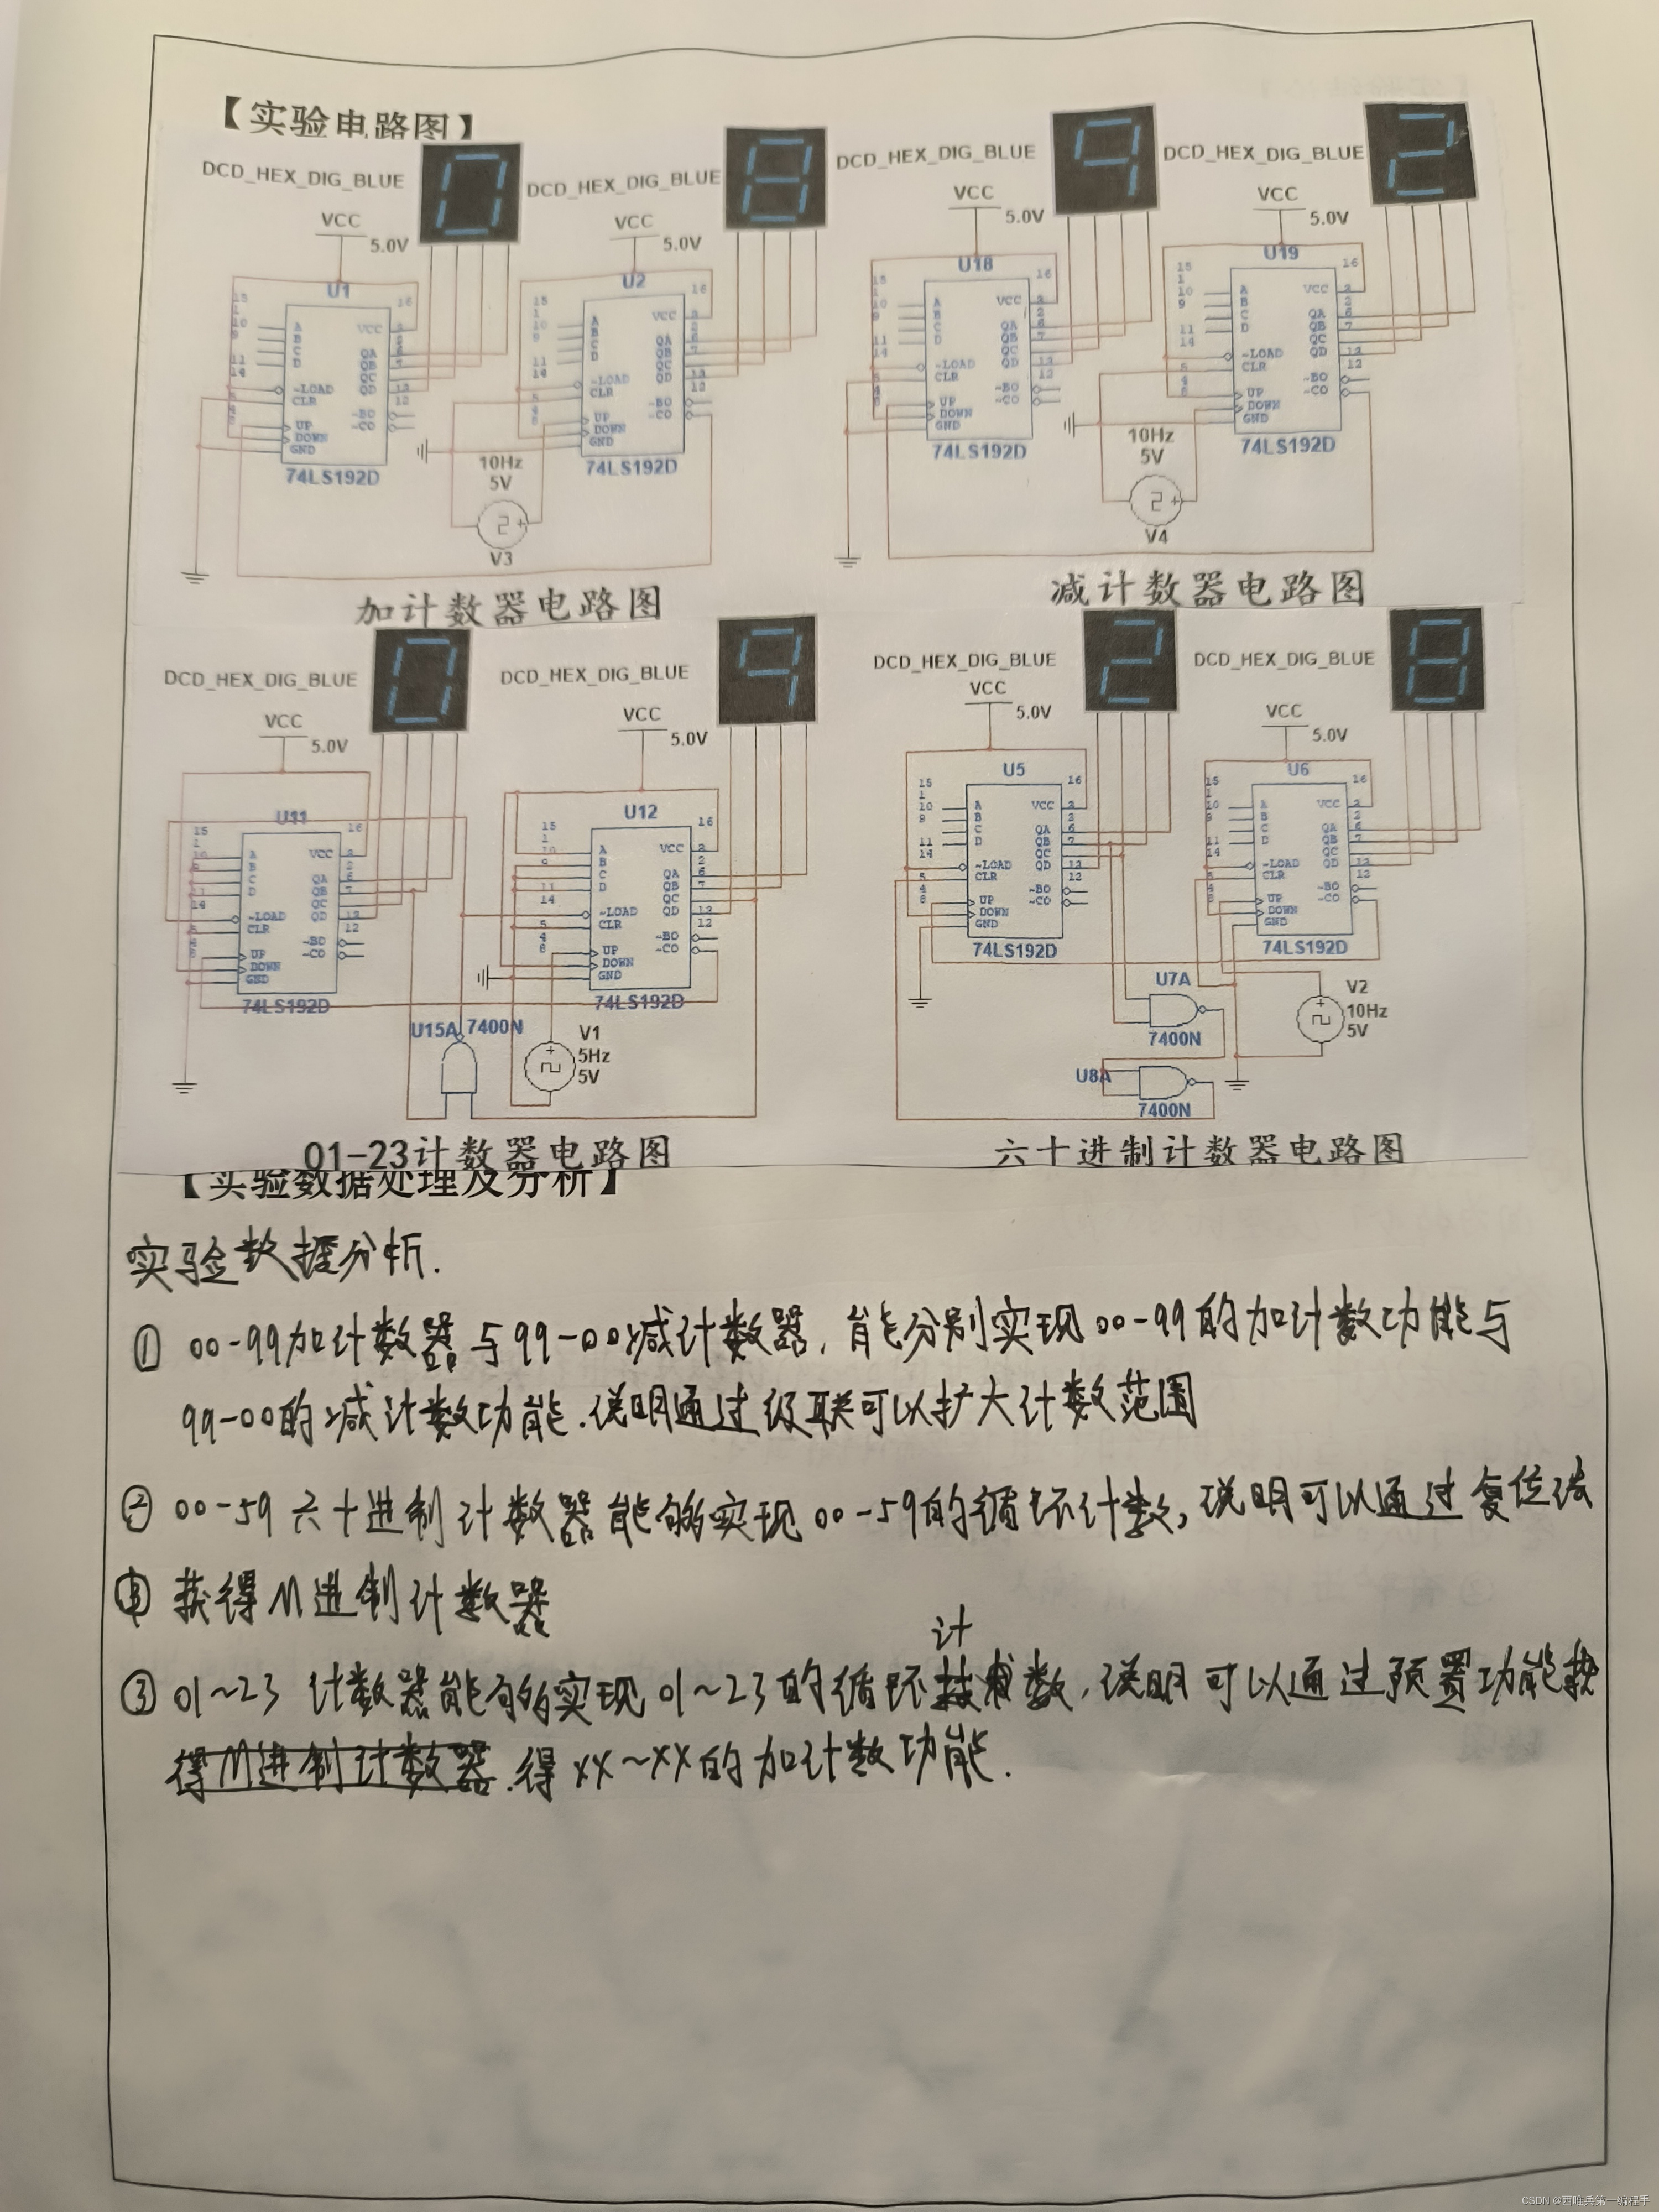 【实验电路图】
DCD_HEX_DIG_BLUE
DCD_HEX_DIG_BLUE
DCD_HEX_DIG_BLUE
DCD_HEX_DIG_BLUE
VCC
5.0V
VCC
5.0V
VCC
5.0V
VCC
5.0V
U1
U2
U18
U19
A
B
C
D
~LOAD
CLR
UP
DOWN
GND
VCC
QA
QB
QC
QD
~BO
~CO
74LS192D
74LS192D
74LS192D
74LS192D
10Hz
5V
V3
10Hz
5V
V4
加计数器电路图
减计数器电路图
DCD_HEX_DIG_BLUE
DCD_HEX_DIG_BLUE
DCD_HEX_DIG_BLUE
DCD_HEX_DIG_BLUE
VCC
5.0V
VCC
5.0V
VCC
5.0V
VCC
5.0V
U11
U12
U5
U6
74LS192D
74LS192D
74LS192D
74LS192D
U15A 7400N
V1
5Hz
5V
U7A
7400N
U8A
7400N
V2
10Hz
5V
01-23计数器电路图
六十进制计数器电路图
【实验数据处理及分析】
实验数据分析.
① 00-99加计数器与99-00减计数器,能分别实现00-99的加计数功能与
99-00的减计数功能.说明通过级联可以扩大计数范围
② 00-59六十进制计数器能够实现00-59的循环计数,说明可以通过复位法
获得M进制计数器
计
③ 01~23 计数器能够实现01~23的循环数,说明可以通过预置功能获
得M进制计数器.得XX~XX的加计数功能.
CSDN @西唯兵第一编程手